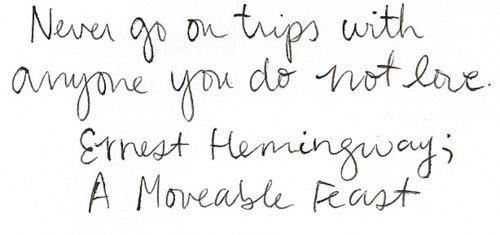 Never go on trips with
anyone you do not love.
Ernest Hemingway;
A Moveable Feast